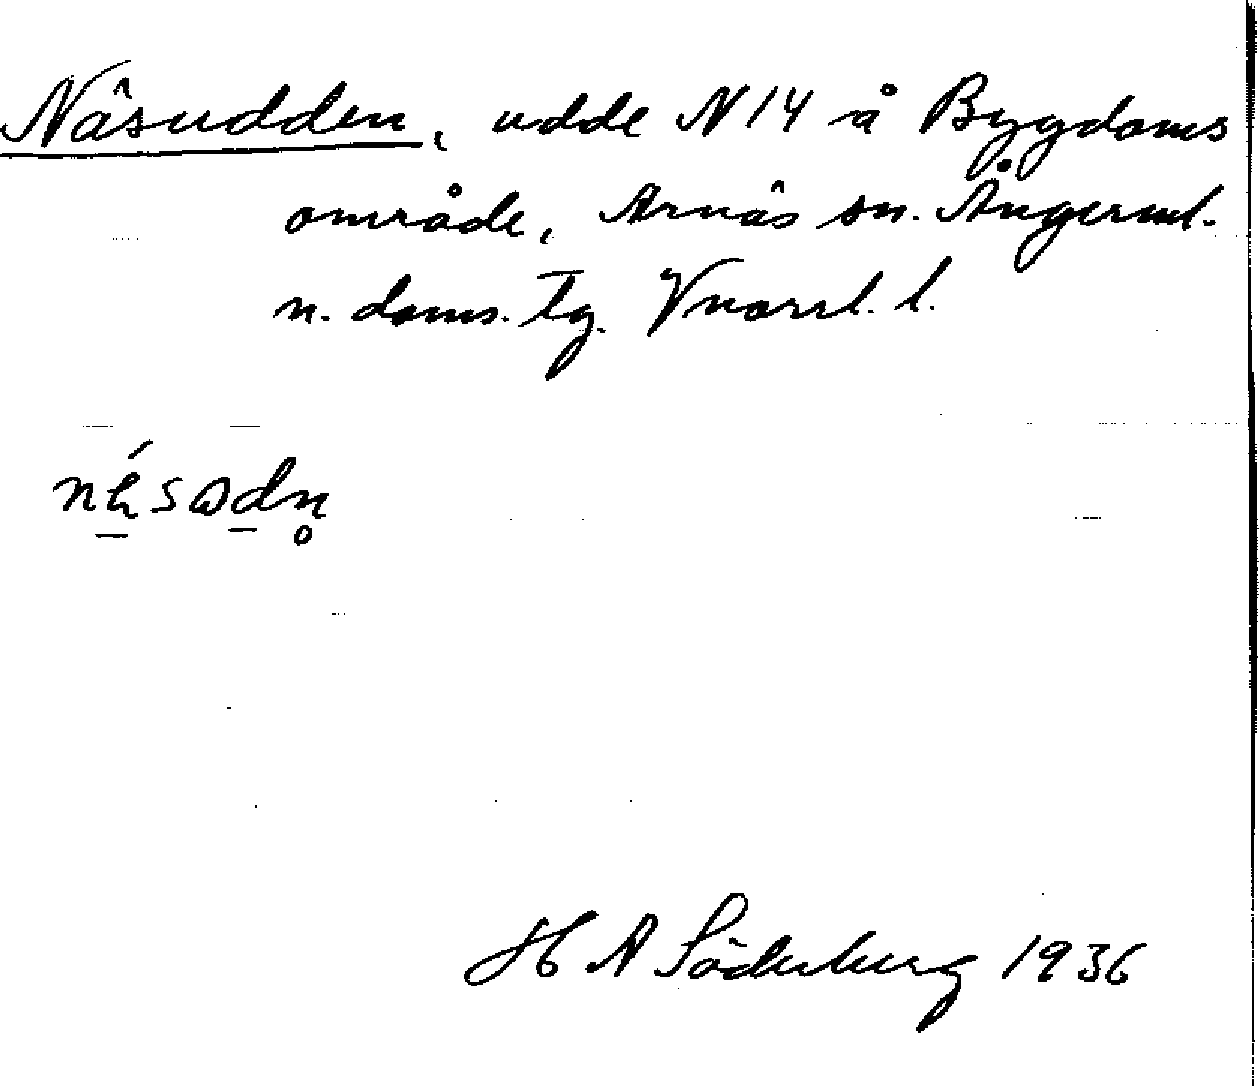 Näsudden, udde N 14 å Bygdoms
område, Arnäs sn. Ångerml.
n. doms. Tg. Vnorrl. l.
H A Söderberg 1936